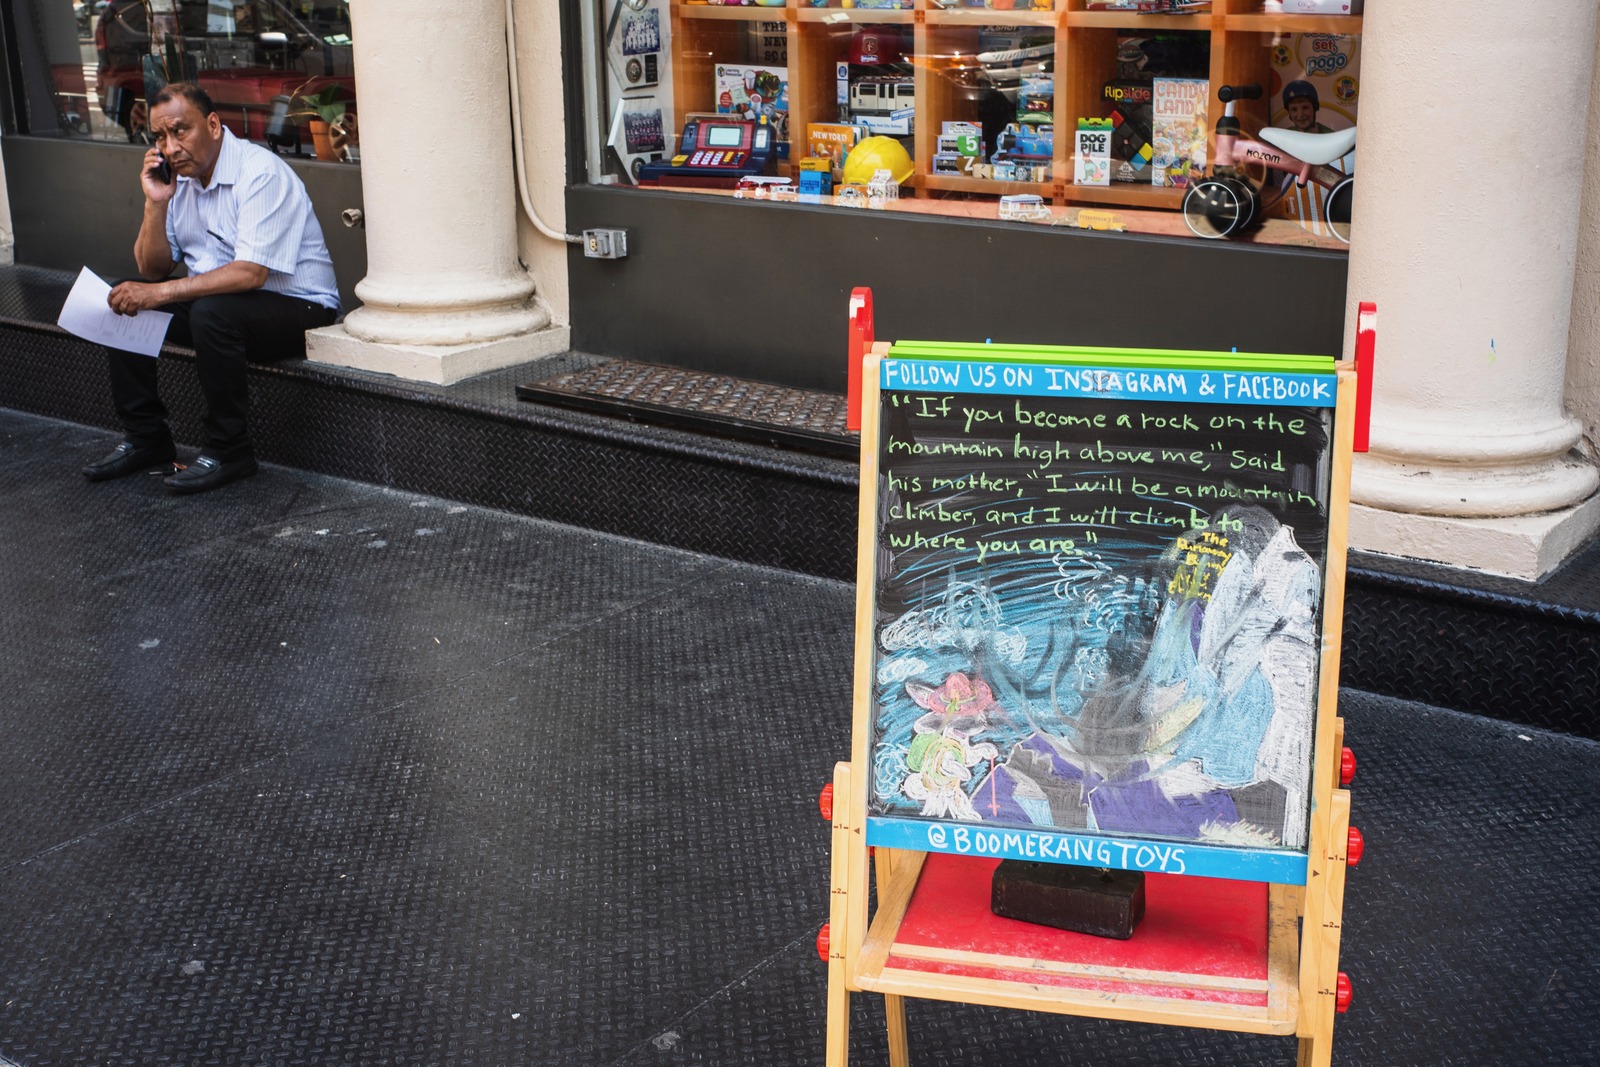 set
pogo
flipslide
CANDY
LAND
DOG
PILE
NEW YORK!
5
7
KAZAM
FOLLOW US ON INSTAGRAM & FACEBOOK
"If you become a rock on the
mountain high above me," said
his mother, "I will be a mountain
climber, and I will climb to
where you are."
The
Runaway
@BOOMERANGTOYS
1
2
3
1
2
3